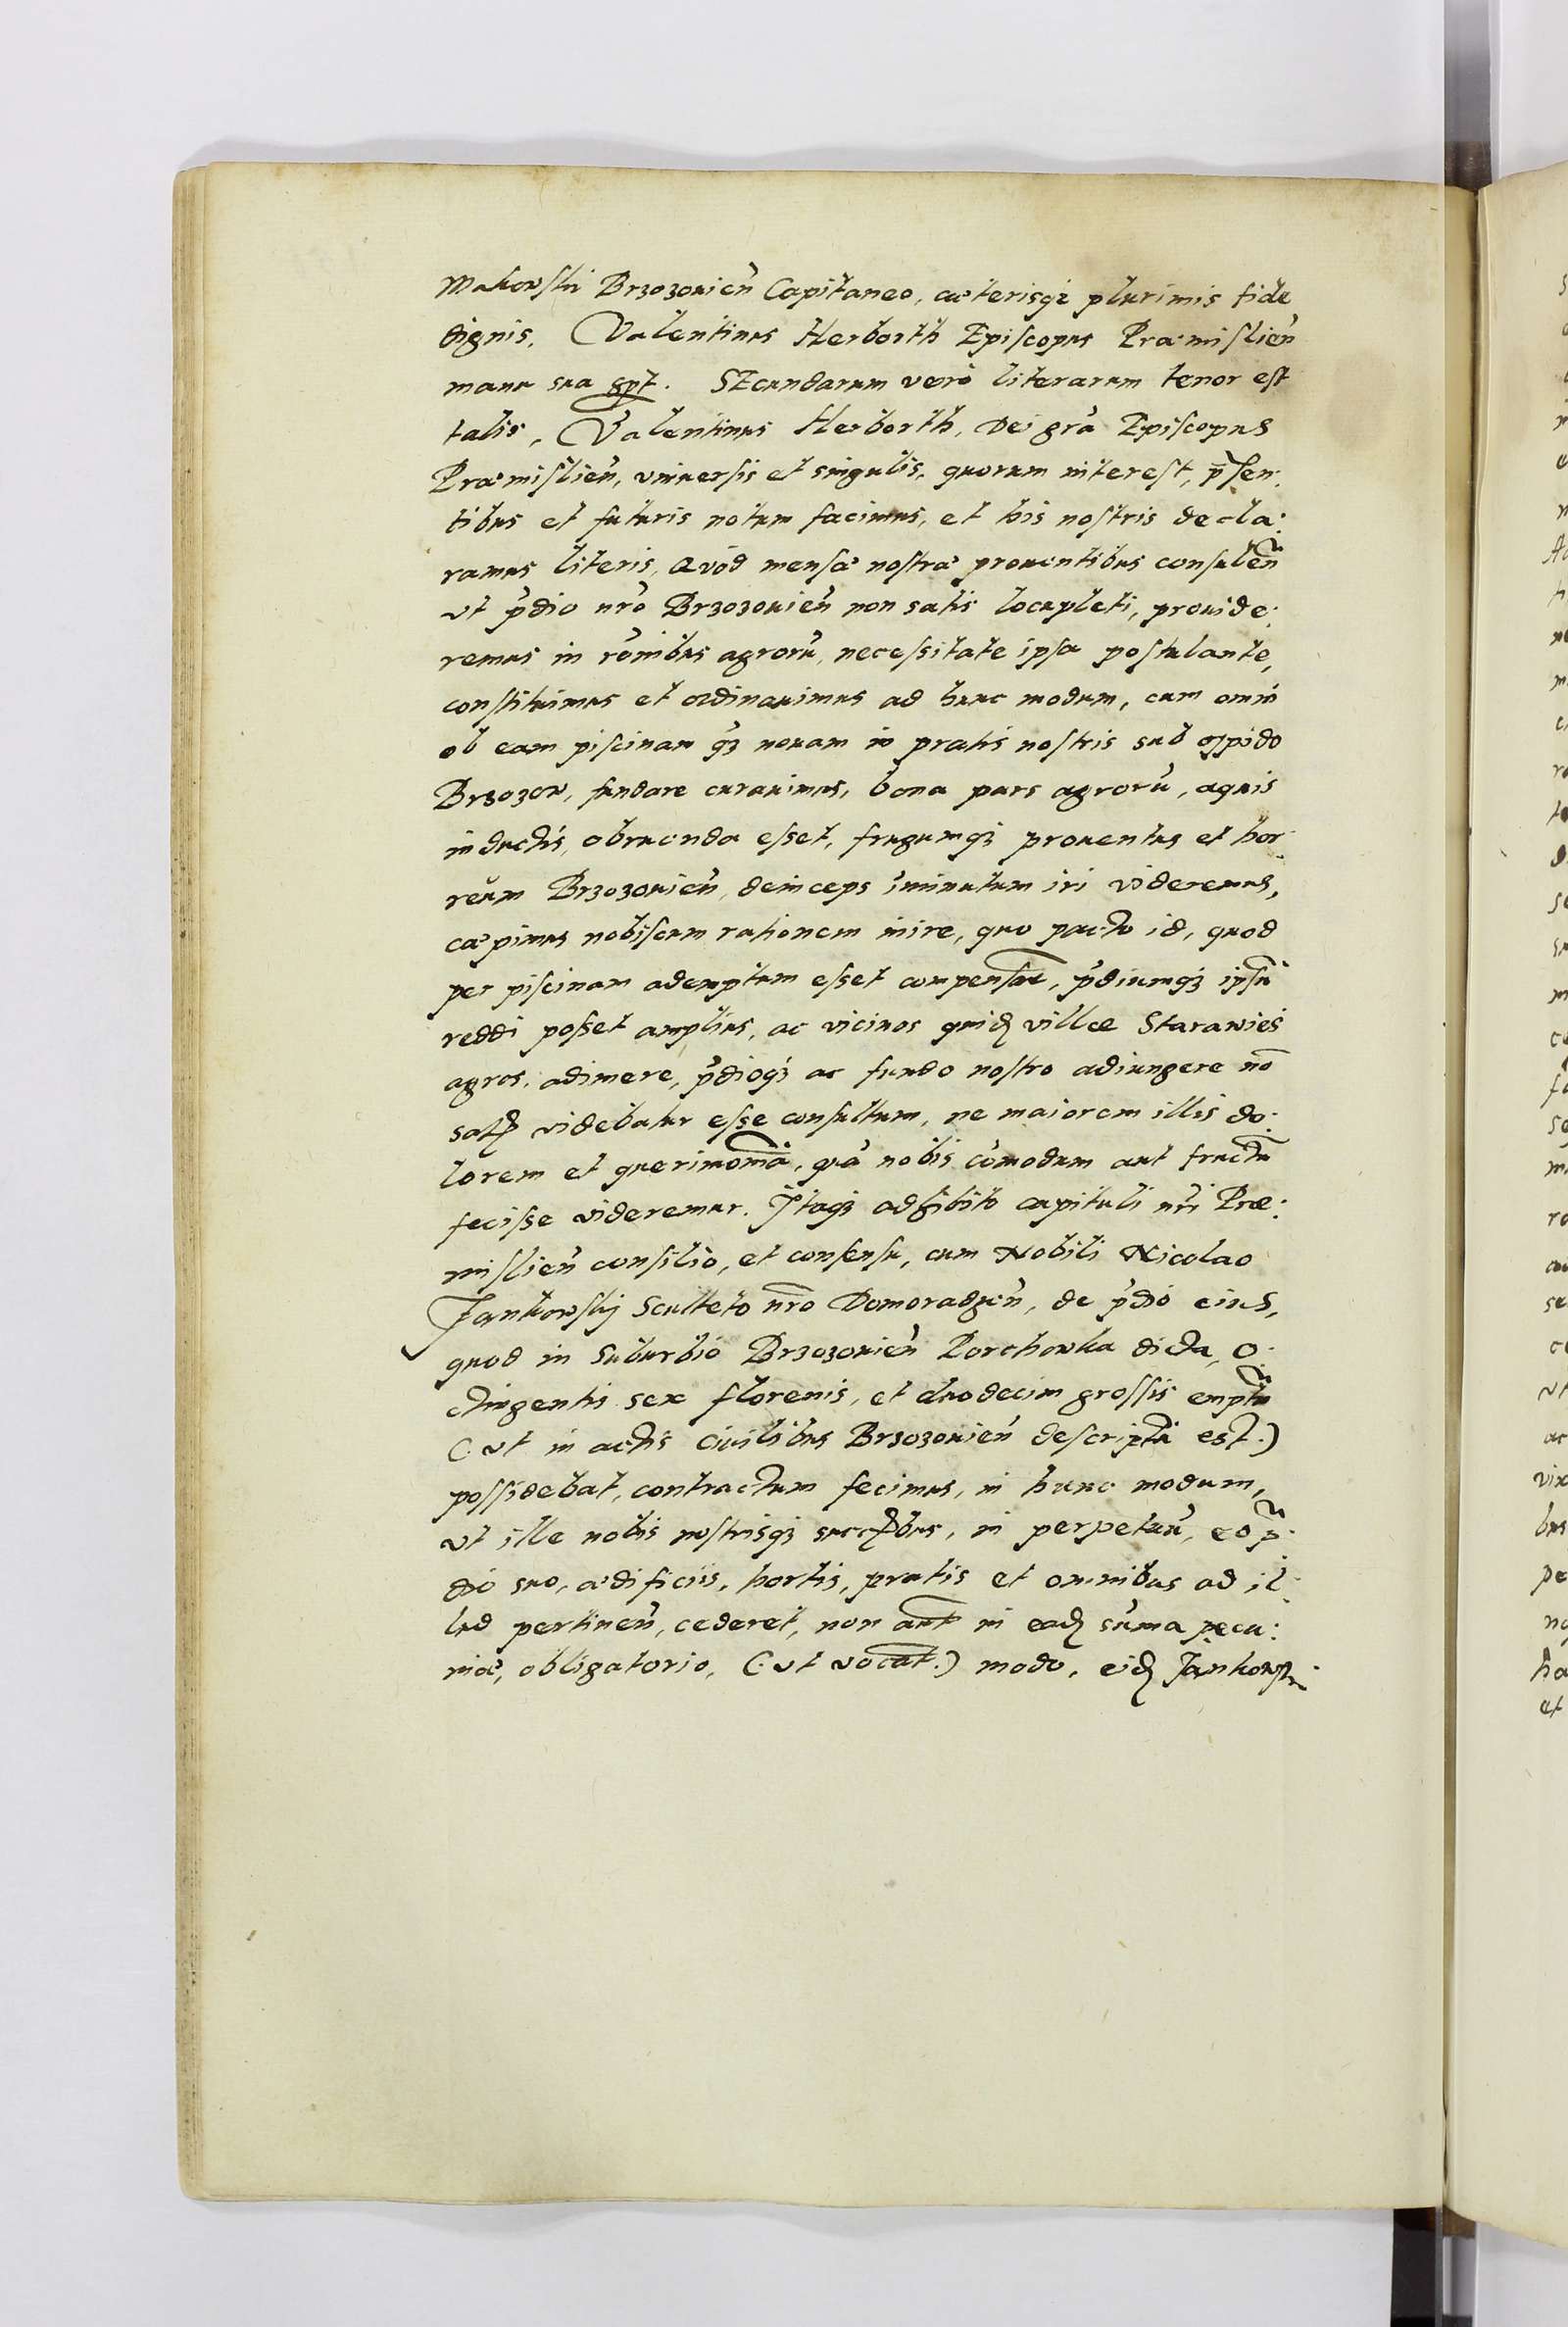 Makowski Brzozouien̄ Capitaneo, cæterisq꜄ plurimis fide
dignis. Valentinus Herborth Episcopus Præmislien̄
manu sua sp̄t. SEcundarum verò literarum tenor est
talis. Valentinus Herborth, Dei grā Episcopus
Præmislien̄, vniuersis et singulis, quorum interest, p̄sen:
tibus et futuris notum facimus, et his nostris decla:
ramus literis, Quòd mensæ nostræ prouentibus consulen̄
vt p̄dio nr̄o Brzozouien̄ non satis locupleti, prouide:
remus in rōnibus agrorū, necessitate ipsa postulante,
constituimus et ordinauimus ad hunc modum, cum om̄io
ob eam piscinam q̄ꝫ nouam in pratis nostris sub oppido
Brzozow, fundare curauimus, bona pars agrorū, aquis
inductis, obruenda esset, frugumqꝫ prouentus et hor:
reum Brzozouien̄, deinceps im̄inutum iri videremus,
cæpimus nobiscum rationem inire, quo pacto id, quod
per piscinam ademptum esset compensār, p̄diumqꝫ ipsū
reddi posset amplius, ac vicinos quid villæ Starawieś
agros, adimere, p̄dioqꝫ ac fundo nostro adiungere nō
satis videbatur esse consultum, ne maiorem illis do:
lorem et querimoniā, quā nobis cōmodum aut fructū
fecisse videremur. Itaqꝫ adhibito capituli nr̄i Præ:
mislien̄ consilio, et consensu, cum Nobili Nicolao
Jankowskij Sculteto nr̄o Domoradzen̄, de p̄dio eius,
quod in suburbio Brzozouien̄ Porchowka dicta, o:
ctingentis sex florenis, et duodecim grossis emptū
(:vt in actis ciuilibus Brzozouien̄ descriptū est:)
possidebat, contractum fecimus, in hunc modum,
vt ille nobis nostrisqꝫ succ̄bus, in perpetuū, eo p̄:
dio suo, ædificiis, hortis, pratis et omnibus ad il:
lud pertinen̄, cederet, non aūt in ead sūma pecu:
niæ, obligatorio, (:vt vocāt:) modo, eid Jankowski